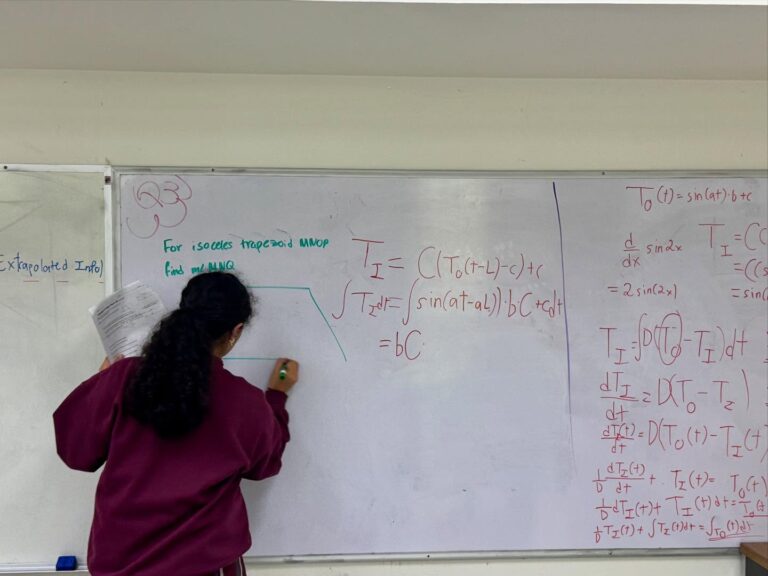 Extrapolated Info)
Q3
For isoceles trapezoid MNOP
find m∠MNQ
T_I = C(T_0(t-L)-c)+c
∫T_I dt = ∫sin(at-aL))·bC+cdt
= bC
T_0(t) = sin(at)·b+c
d/dx sin2x
= 2sin(2x)
T_I = C(
= C(s
= sin(
T_I = ∫D(T_0 - T_I)dt
dT_I/dt = D(T_0 - T_I)
dT_I(t)/dt = D(T_0(t) - T_I(t)
1/D dT_I(t)/dt + T_I(t) = T_0(t)
1/D dT_I(t) + T_I(t)dt = T_0(t
1/D T_I(t) + ∫T_I(t)dt = ∫T_0(t)dt